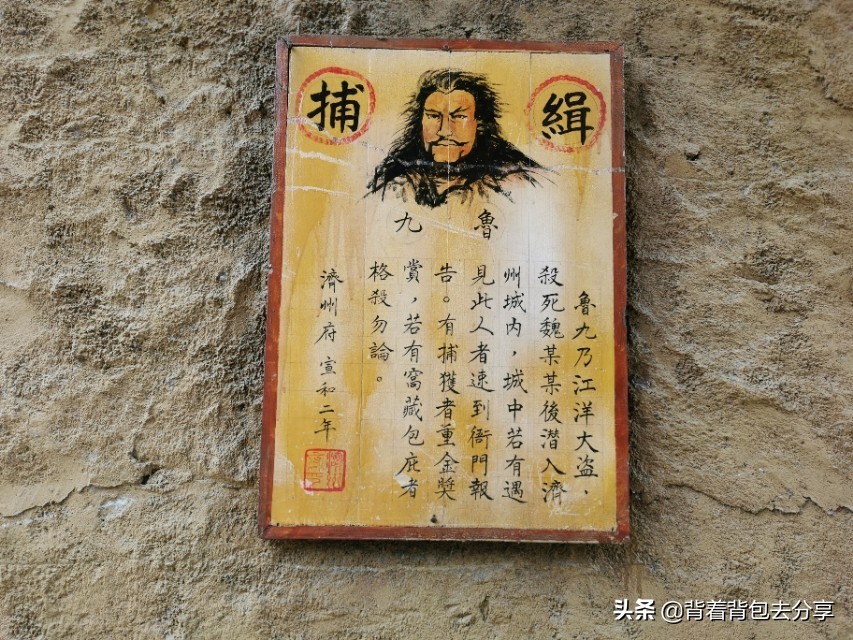 緝捕
魯九
魯九乃江洋大盗，
殺死魏某某後潜入濟
州城内，城中若有遇
見此人者速到衙門報
告。有捕獲者重金獎
賞，若有窩藏包庇者
格殺勿論。
濟州府 宣和二年
头条 @背着背包去分享